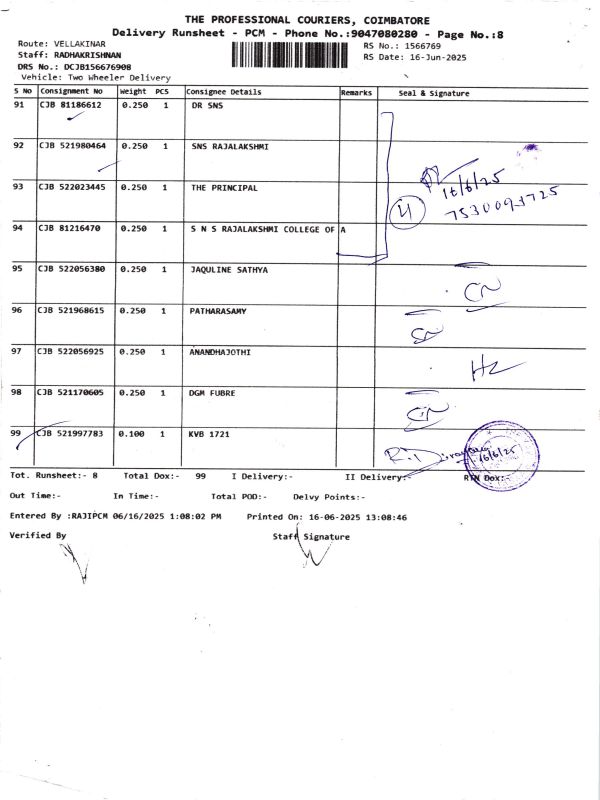 THE PROFESSIONAL COURIERS, COIMBATORE
Delivery Runsheet - PCM - Phone No.:9047080280 - Page No.:8
Route: VELLAKINAR
RS No.: 1566769
Staff: RADHAKRISHNAN
RS Date: 16-Jun-2025
DRS No.: DCJB156676908
Vehicle: Two Wheeler Delivery
S No Consignment No Weight PCS Consignee Details Remarks Seal & Signature
91 CJB 81186612 0.250 1 DR SNS
92 CJB 521980464 0.250 1 SNS RAJALAKSHMI
93 CJB 522023445 0.250 1 THE PRINCIPAL
16/6/25
7530093725
4
94 CJB 81216470 0.250 1 S N S RAJALAKSHMI COLLEGE OF A
95 CJB 522056380 0.250 1 JAQULINE SATHYA
96 CJB 521968615 0.250 1 PATHARASAMY
97 CJB 522056925 0.250 1 ANANDHAJOTHI
98 CJB 521170605 0.250 1 DGM FUBRE
99 CJB 521997783 0.100 1 KVB 1721
16/6/25
Tot. Runsheet:- 8 Total Dox:- 99 I Delivery:- II Delivery:- RTN Dox:-
Out Time:- In Time:- Total POD:- Delvy Points:-
Entered By :RAJIPCM 06/16/2025 1:08:02 PM Printed On: 16-06-2025 13:08:46
Verified By Staff Signature